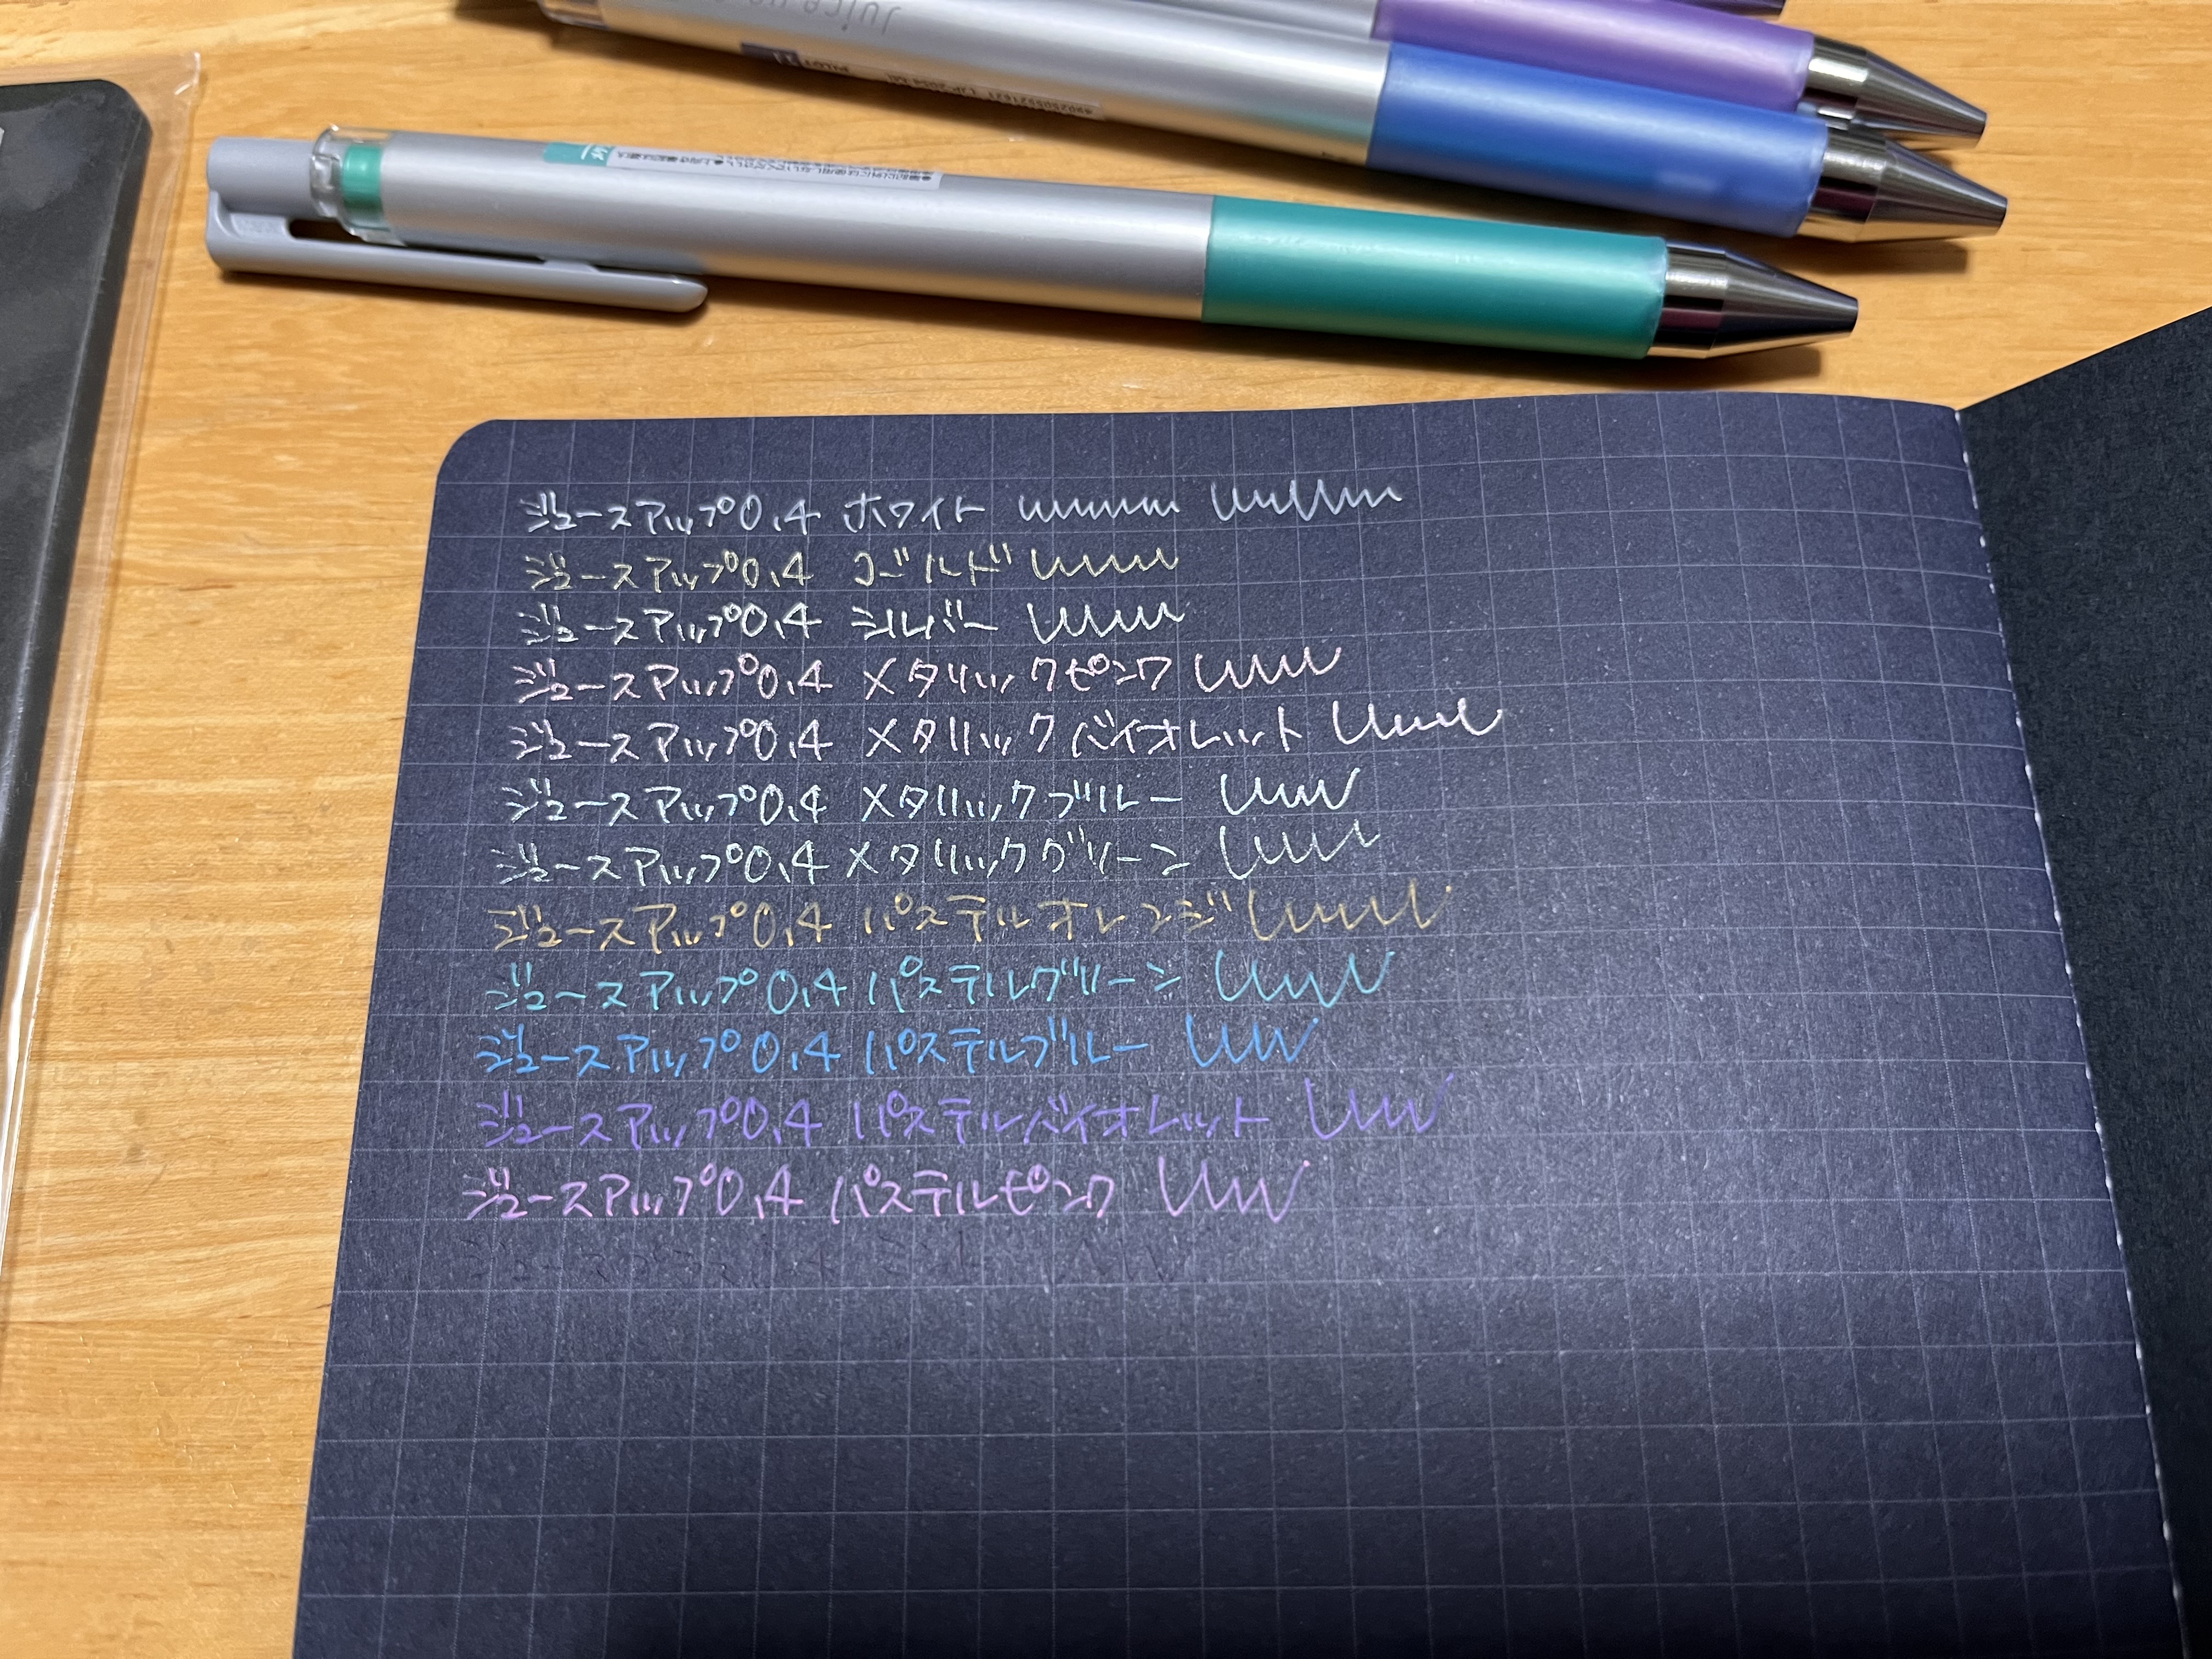 Juice up
PILOT
ジュースアップ0.4 ホワイト
ジュースアップ0.4 ゴールド
ジュースアップ0.4 シルバー
ジュースアップ0.4 メタリックピンク
ジュースアップ0.4 メタリックバイオレット
ジュースアップ0.4 メタリックブルー
ジュースアップ0.4 メタリックグリーン
ジュースアップ0.4 パステルオレンジ
ジュースアップ0.4 パステルグリーン
ジュースアップ0.4 パステルブルー
ジュースアップ0.4 パステルバイオレット
ジュースアップ0.4 パステルピンク